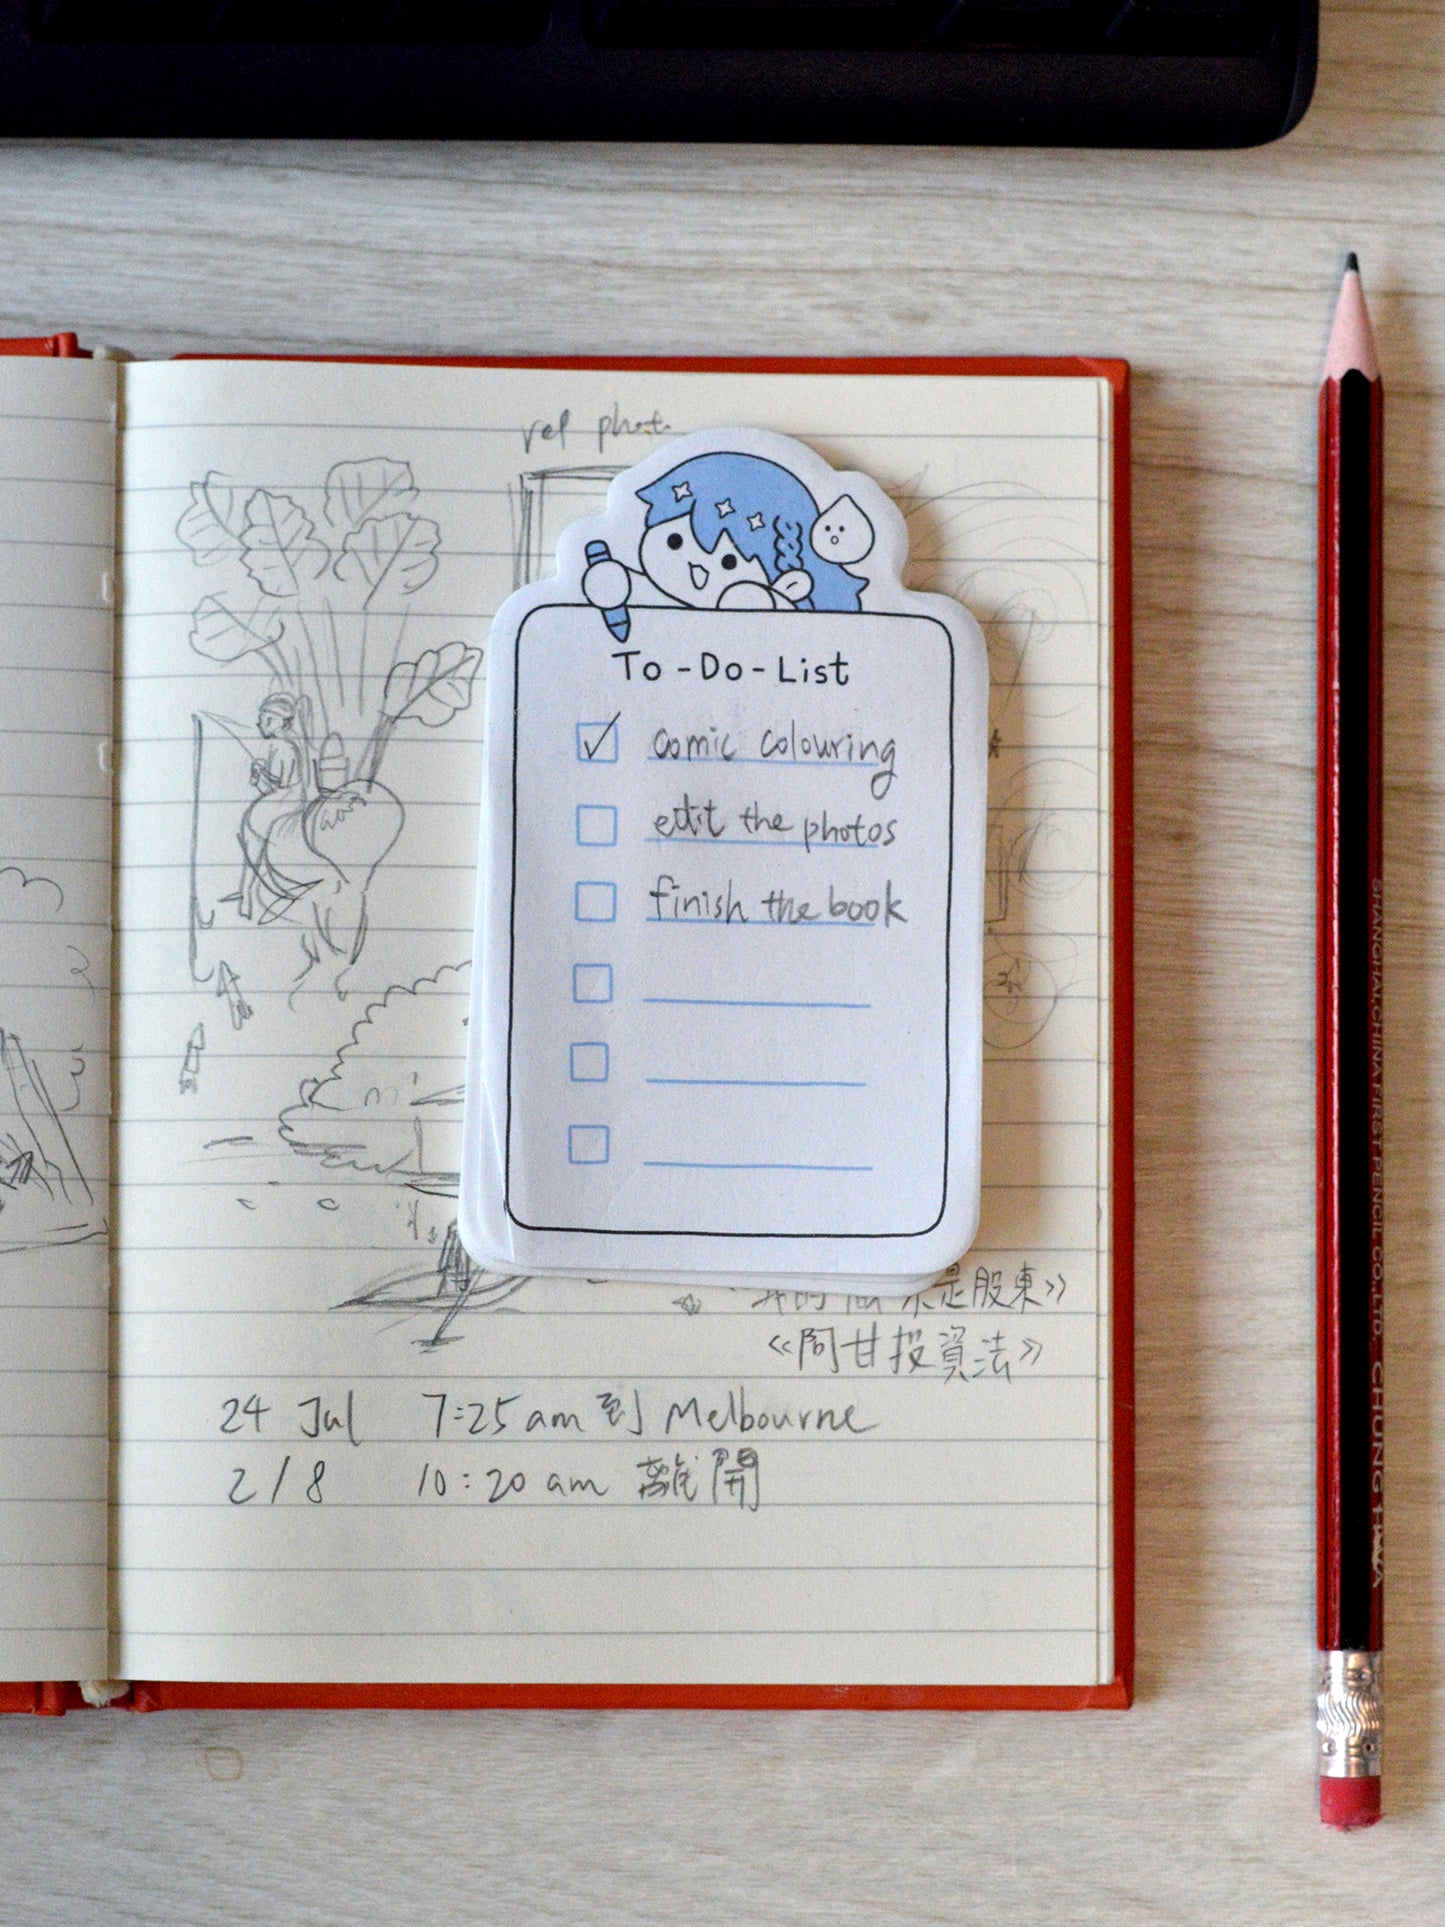 rel photo
To-Do-List
comic colouring
edit the photos
finish the book
是股東》
《阿甘投資法》
24 Jul 7:25 am 到 Melbourne
2/8 10:20 am 離開
SHANGHAI,CHINA FIRST PENCIL CO.,LTD. CHUNG HWA